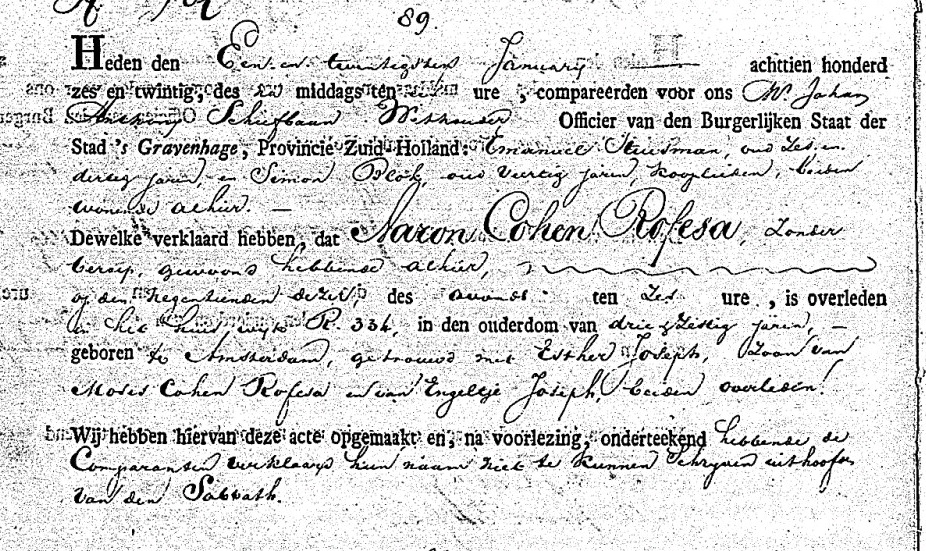 89.
Heden den Een en twintigsten Januarij achttien honderd
zes en twintig, des middags ten ure, compareerden voor ons Mr. Johan
Schiefbaan Wethouder Officier van den Burgerlijken Staat der
Stad 's Gravenhage, Provincie Zuid-Holland: Emanuel Stuisman, oud Zes en
dertig jaren, en Simon Blok, oud Veertig jaren, Kooplieden, beiden
wonende alhier. —
Dewelke verklaard hebben, dat Aaron Cohen Rofesa, Zonder
beroep, gewoond hebbende alhier,
op den Negentienden dezer des avonds ten Zes ure, is overleden
in het huis, wijk R. 334, in den ouderdom van drie & Zestig jaren, —
geboren te Amsterdam, getrouwd met Esther Joseph, Zoon van
Moses Cohen Rofesa en van Engeltje Joseph, beiden overleden.
Wij hebben hiervan deze acte opgemaakt en, na voorlezing, onderteekend hebbende de
Comparanten verklaard hun naam niet te kunnen Schryven uithoofde
van den Sabbath.